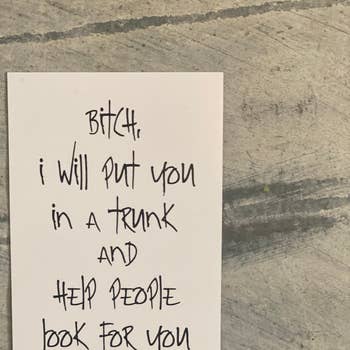 BitCH,
i will put you
in A trunk
AND
HELP PEOPLE
look FOR you